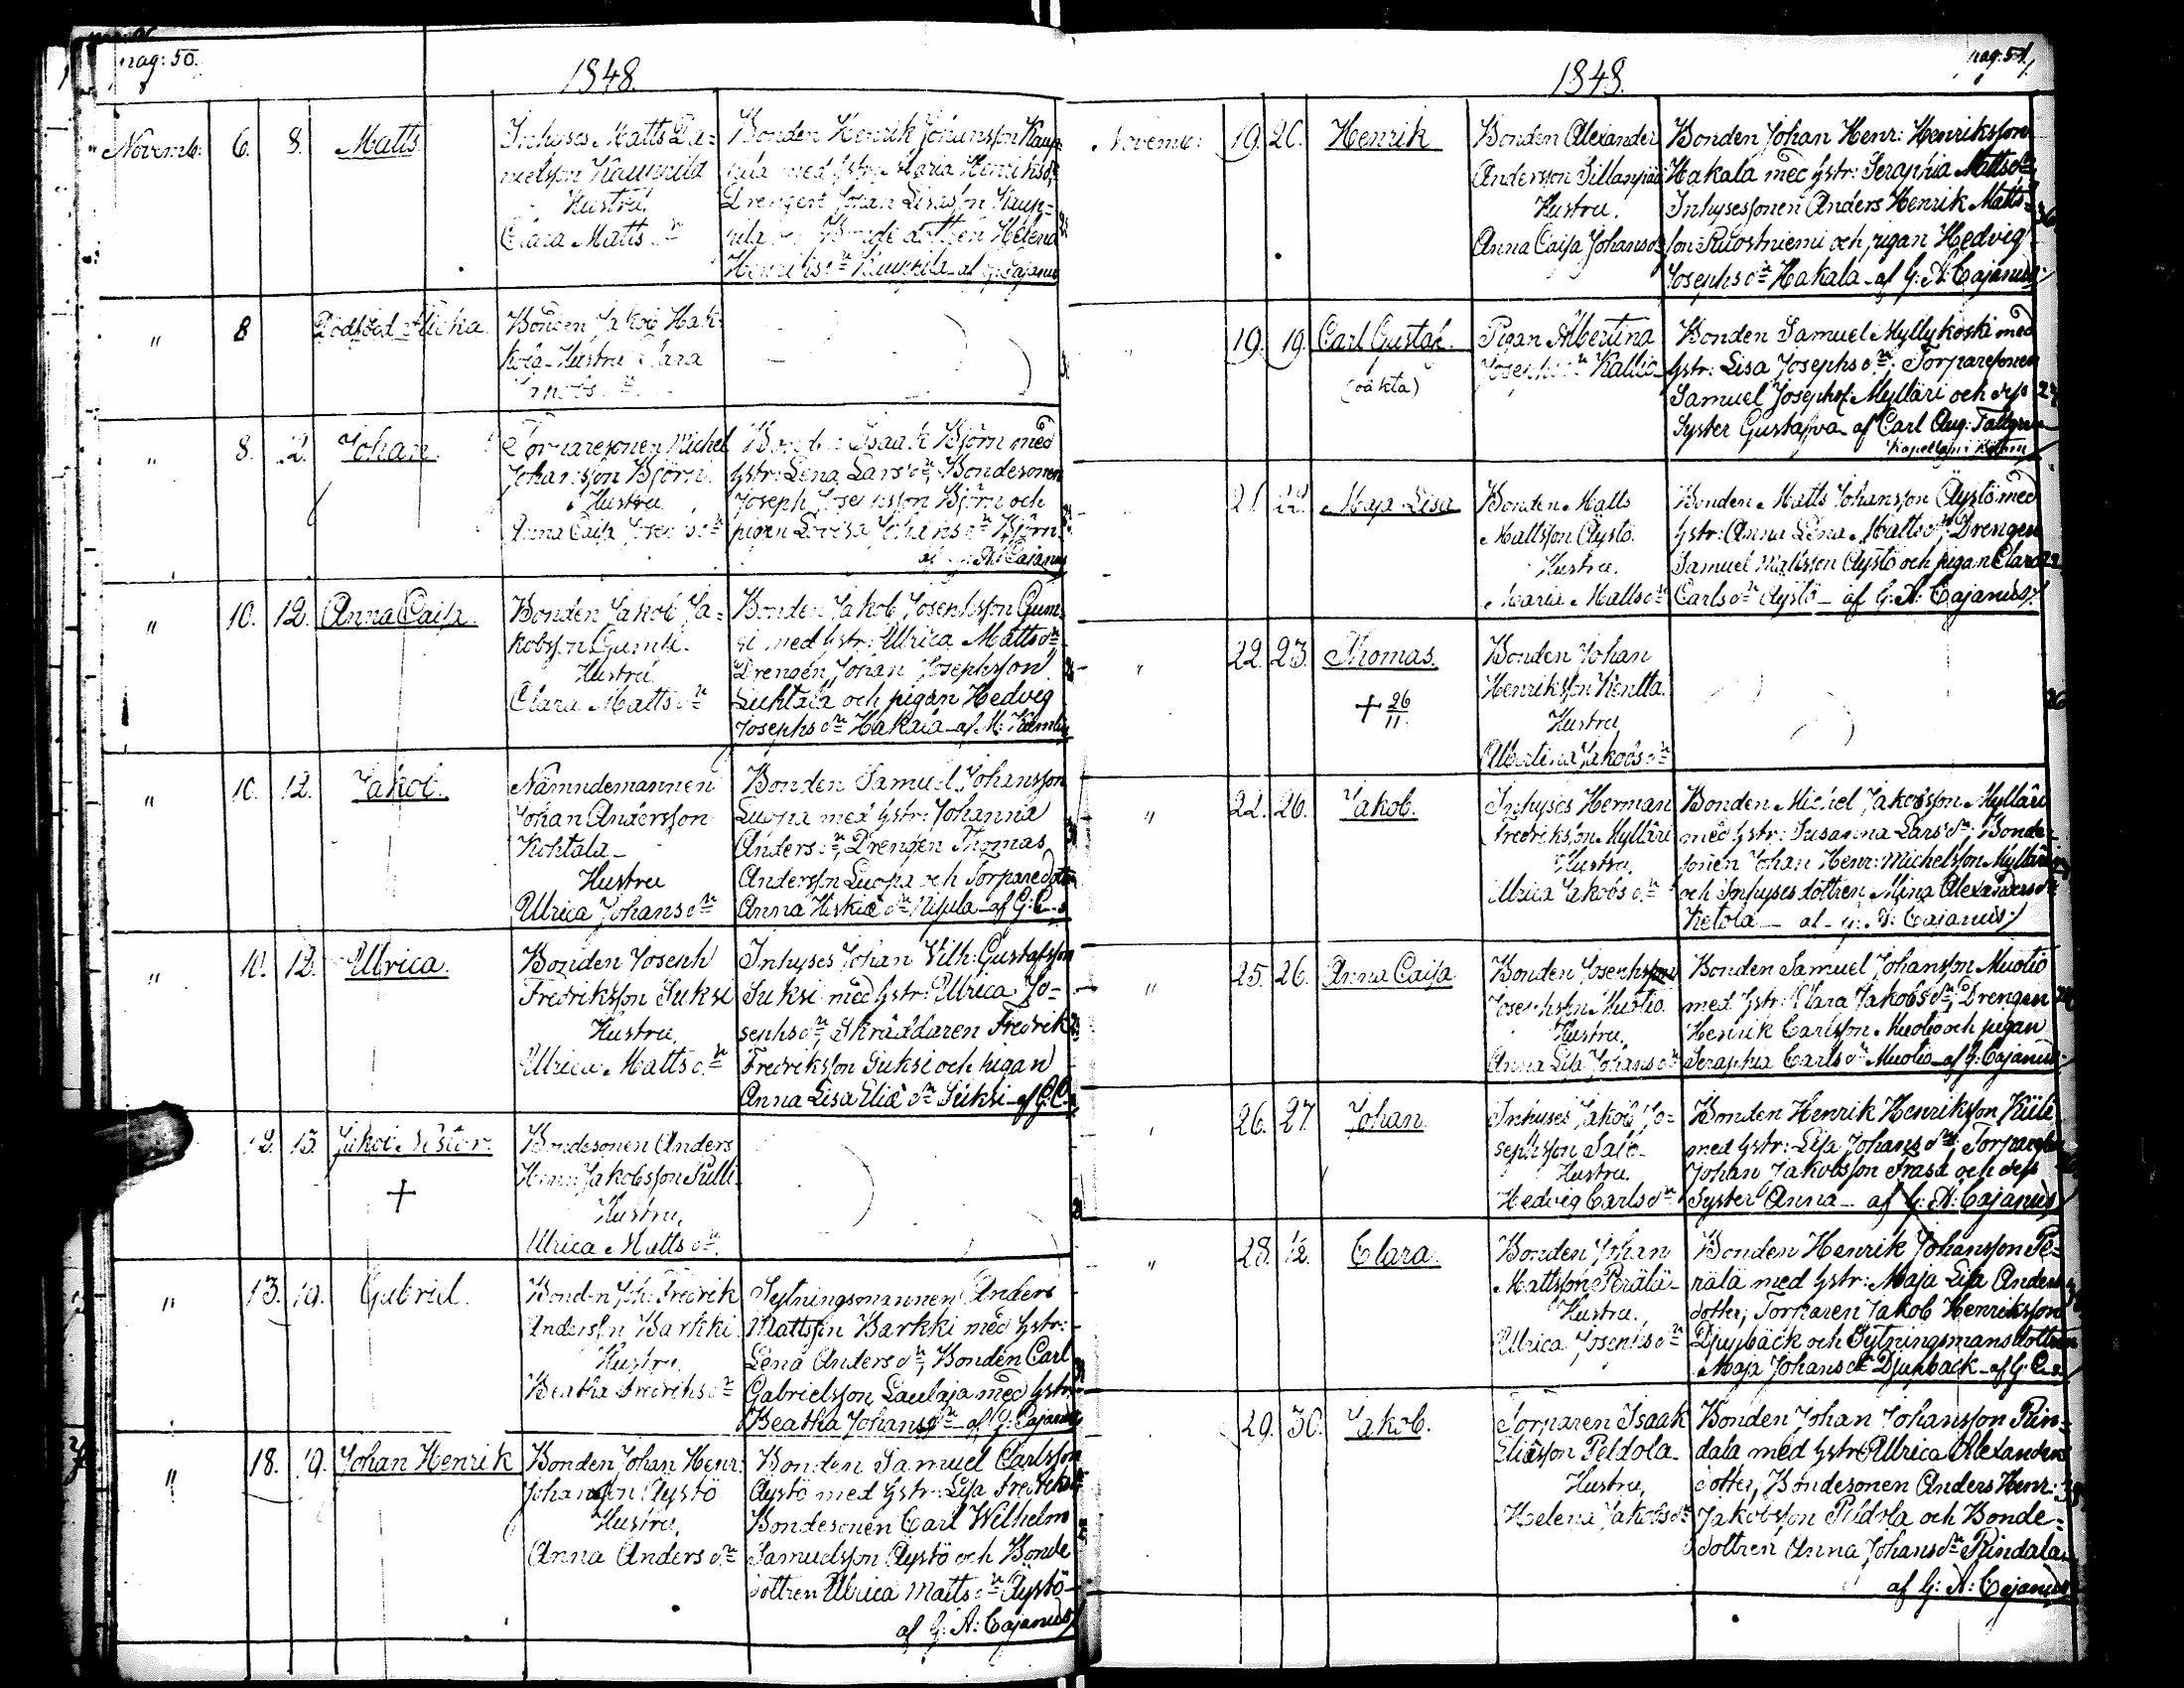 pag: 50.
1848.
Novemb: 6. 8. Matts
Inhyses Matts Da=
nielsson Kauppila
Hustru
Clara Matts dr
Bonden Henrik Johansson Kaup=
pila med hstr: Maria Henriksdr,
Drengen Johan Lisasson Kaup=
pila och Bonde dottren Helena
Henriksdr Kauppila af G: Cajanus
" 8 Dödfödd flicka.
Bonden Jakob Hak
Hustru Clara
" 8. 12. Johan.
Torparesonen Michel
Johansson Björn.
Hustru
Anna Caisa Josephsdr
Bonden Isaak Björn med
hstr: Lena Larsdr, Bondesonen
Joseph Josephsson Björn och
pigan Lovisa Johansdr Björn
af G: A: Cajanus
" 10. 12. Anna Caisa.
Bonden Jakob Ja=
kobsson Gumsi.
Hustru
Clara Matts dr
Bonden Jakob Josephsson Gum=
si med hstr: Ulrica Mattsdr
Drengen Johan Josephsson
Luhtala och pigan Hedvig
Josephsdr Hakala af M:
" 10. 12. Jakob.
Nämndemannen
Johan Andersson
Kohtala
Hustru
Ulrica Johansdr
Bonden Samuel Johansson
Luopa med hstr: Johanna
Andersdr, Drengen Thomas
Andersson Luopa och Torparedottr
Anna Hiskiæ dr Nisula af G: C
" 10. 12. Ulrica.
Bonden Joseph
Fredriksson Suksi
Hustru,
Ulrica Mattsdr
Inhyses Johan Vilh: Gustafsson
Suksi med hstr: Ulrica Jo=
sephsdr, Skräddaren Fredrik
Fredriksson Suksi och pigan
Anna Lisa Eliæ dr Suksi af G: C.
12. 13. Jakob Nestor.
+
Bondesonen Anders
Henr: Jakobsson Pulli
Hustru,
Ulrica Matts dr.
" 13. 19. Gabriel.
Bonden Joh: Fredrik
Andersson Barkki
Hustru,
Beatha Fredriksdr
Sytningsmannen Anders
Mattsson Barkki med hstr:
Lena Andersdr, Bonden Carl
Gabrielsson Laulaja med hstr
Beatha Johansdr af G: Cajanus
" 18. 19. Johan Henrik
Bonden Johan Henr:
Johansson Äystö
Hustru,
Anna Andersdr
Bonden Samuel Carlsson
Äystö med hstr: Lisa Fredriksdr
Bondesonen Carl Wilhelm
Samuelsson Äystö och Bonde
dottren Ulrica Mattsdr Äystö
af G: A: Cajanus
pag: 51.
1848.
November 19. 20. Henrik
Bonden Alexander
Andersson Sillanpää
Hustru.
Anna Caisa Johansdr
Bonden Johan Henr: Henriksson
Hakala med hstr: Seraphia Mattsdr
Inhysessonen Anders Henrik Matts=
son Ruostniemi och pigan Hedvig
Josephsdr Hakala af G: A: Cajanus
" 19. 19. Carl Gustaf.
(oäkta)
Pigan Albertina
Josephsdr Kallio
Bonden Samuel Myllykoski med
hstr: Lisa Josephsdr, Torparesonen
Samuel Josephss. Mylläri och dess
Syster Gustafva af Carl Aug: Tallgren
21. 22. Maja Lisa
Bonden Matts
Mattsson Äystö.
Hustru.
Maria Mattsdr
Bonden Matts Johansson Äystö med
hstr: Anna Lena Mattsdr, Drengen
Samuel Mattsson Äystö och pigan Clara
Carlsdr Äystö af G: A: Cajanus
" 22. 23. Thomas.
+ 26/11.
Bonden Johan
Henriksson Kentta.
Hustru
Albertina Jakobsdr
" 22. 26. Jakob.
Inhyses Herman
Fredriksson Mylläri
Hustru,
Ulrica Jakobsdr
Bonden Michel Jakobsson Mylläri
med hstr: Susanna Larsdr, Bonde=
sonen Johan Henr: Michelsson Mylläri
och Inhyses dottren Mina Alexandersdr
Ketola af G: A: Cajanus
" 25. 26. Anna Caisa
Bonden Josephsson
Josephsson Muotio.
Hustru,
Anna Lisa Johansdr
Bonden Samuel Johansson Muotio
med hstr: Clara Jakobsdr, Drengen
Henrik Carlsson Muotio och pigan
Seraphia Carlsdr Muotio af G: Cajanus
26. 27. Johan
Inhyses Jakob Jo=
sephsson Salo
Hustru.
Hedvig Carlsdr
Bonden Henrik Henriksson Küli
med hstr: Lisa Johansdr, Torparson
Johan Jakobsson Frasa och dess
Syster Anna af G: A: Cajanus
" 28. 1/12. Clara.
Bonden Johan
Mattsson Perälä
Hustru,
Ulrica Josephsdr
Bonden Henrik Johansson Pe=
rälä med hstr: Maja Lisa Anders
dotter, Torparen Jakob Henriksson
Djupbäck och Sytningsmans dottren
Maja Johansdr Djupbäck af G: C
29. 30. Jakob.
Torparen Isaak
Eliasson Peldola
Hustru,
Helena Jakobsdr
Bonden Johan Johansson Rin=
dala med hstr: Ulrica Alexanders
dotter, Bondesonen Anders Henr:
Jakobsson Peldola och Bonde=
dottren Anna Johansdr Rindala
af G: A: Cajanus